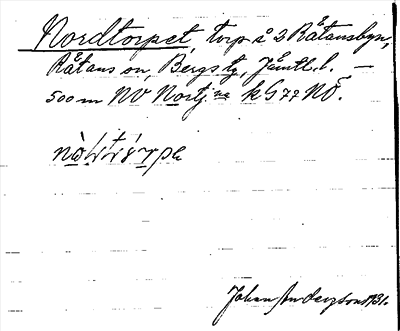 Nordtorpet, torp å 2 Råtansbyn,
Råtans sn, Bergs tg, Jämtl. l. —
500 m NV Nortj:na kG77NÖ.
Johan Anderzson 1931.